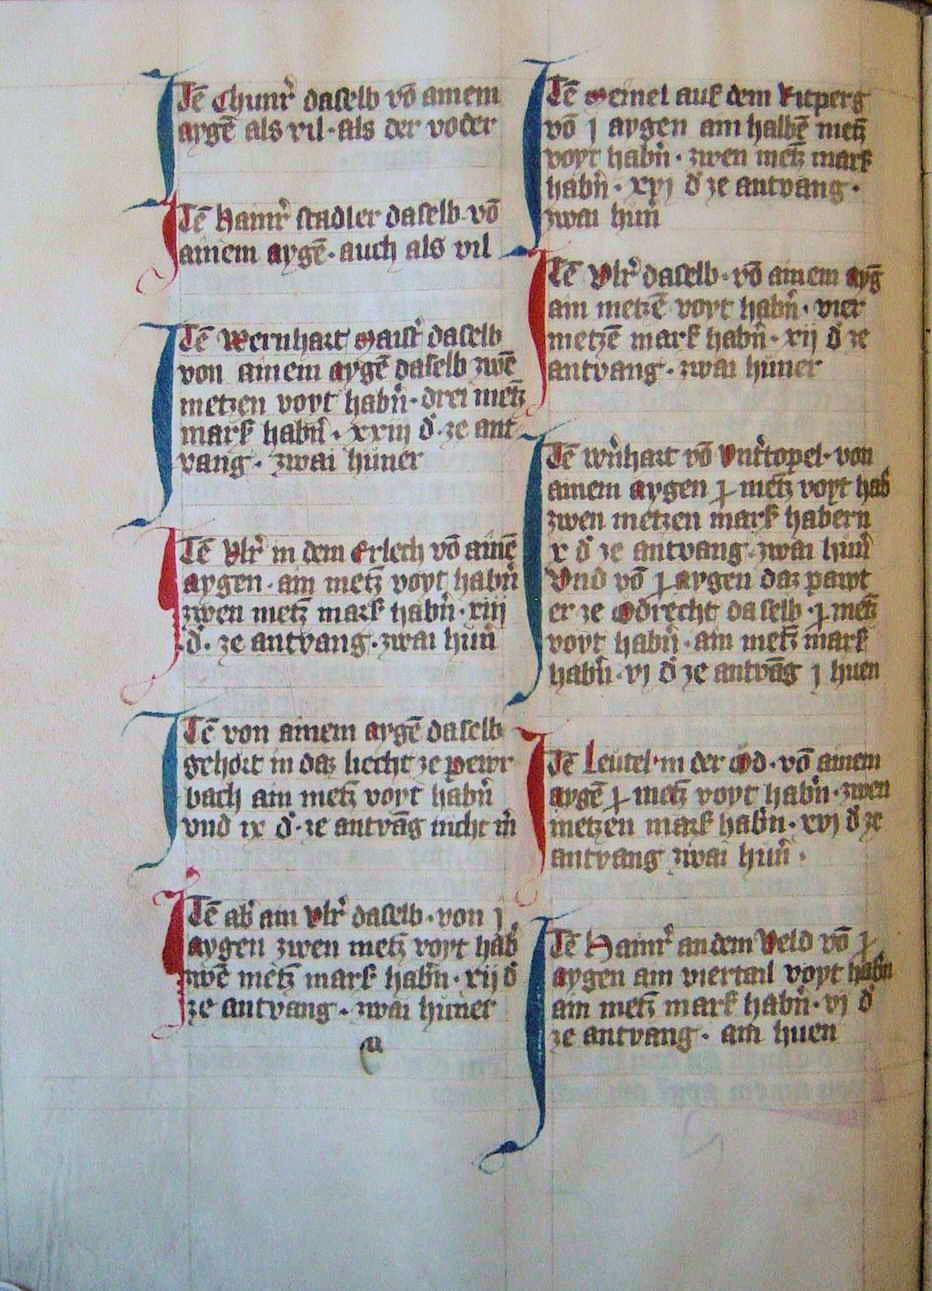 Itē Chunr̄ daselb vō ainem
aygē als vil · als der voder
Itē Hainr̄ stadler daselb · vō
ainem aygē · auch als vil
Itē Wernhart Maist̄ daselb
von ainem aygē daselb zwē
metzen voyt habn̄ · drei metz̄
mark habn̄ · xxiij d̄ · ze ant
vang · zwai hüner
Itē Vlr̄ in dem Erlech vō ainē
aygen · ain metz̄ voyt habn̄
zwen metz̄ mark habn̄ · xiij
d̄ · ze antvang · zwai hün̄
Itē von ainem aygē daselb
gehört in daz liecht ze pewr
bach ain metz̄ voyt habn̄
vnd ix d̄ · ze antvāg nicht m̄
Itē ab̄ ain Vlr̄ daselb · von j
aygen zwen metz̄ voyt hab̄
zwē metz̄ mark habn̄ · xij d̄
ze antvang · zwai hüner
Itē Meinel auf dem
vō j aygen ain halbē metz̄
voyt habn̄ · zwen metz̄ mark
habn̄ · xvj d̄ ze antvang ·
zwai hün̄
Itē Vlr̄ daselb · vō ainem ayḡ
ain metzē voyt habn̄ · vier
metzē mark habn̄ · xij d̄ ze
antvang · zwai hüner
Itē Wn̄hart vō · von
ainem aygen ꝭ metz̄ voyt hab̄
zwen metzen mark habern
x d̄ ze antvang · zwai hün̄
Vnd vō ꝭ aygen daz pawt
er ze daselb · ꝭ metz̄
voyt habn̄ · ain metz̄ mark
habn̄ · vj d̄ ze antvāg j huen
Itē Leutel in der Öd · vō ainem
aygē ꝭ metz̄ voyt habn̄ · zwen
metzen mark habn̄ · xvj d̄ ze
antvang zwai hün̄ ·
Itē Hainr̄ an dem Veld vō ꝭ
aygen ain viertail voyt habn̄
ain metz̄ mark habn̄ · vj d̄
ze antvang · ain huen